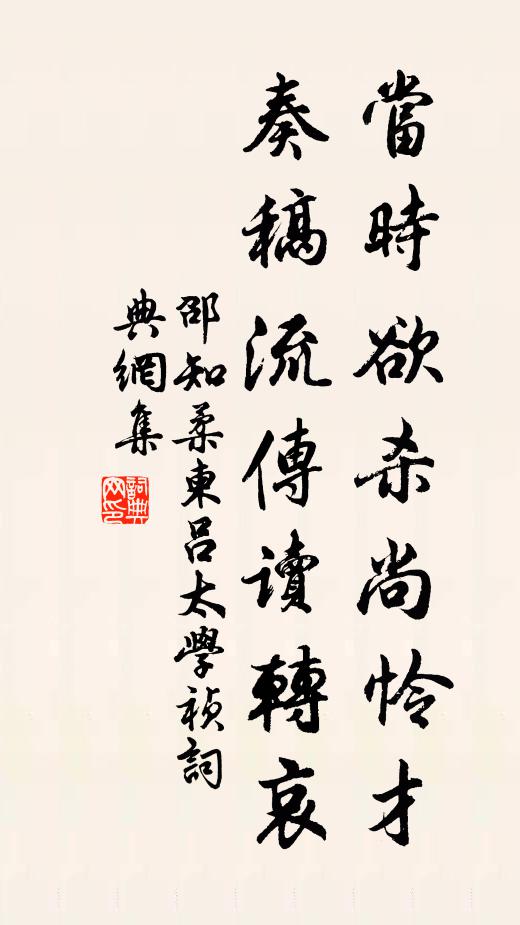 當時欲杀尚怜才
奏稿流傳讀轉哀
邵知柔東呂太學祯詞
典網集
詞典网印